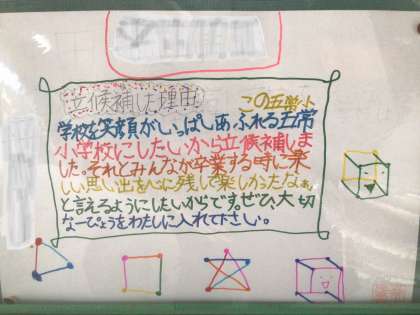 立候補した理由
この五常小
学校を笑顔がいっぱいあふれる五常
小学校にしたいから立候補しま
した。それとみんなが卒業する時に楽
しい思い出を心に残して楽しかったなぁ
と言えるようにしたいからです。ぜひ、大切
なーぴょうをわたしに入れて下さい。